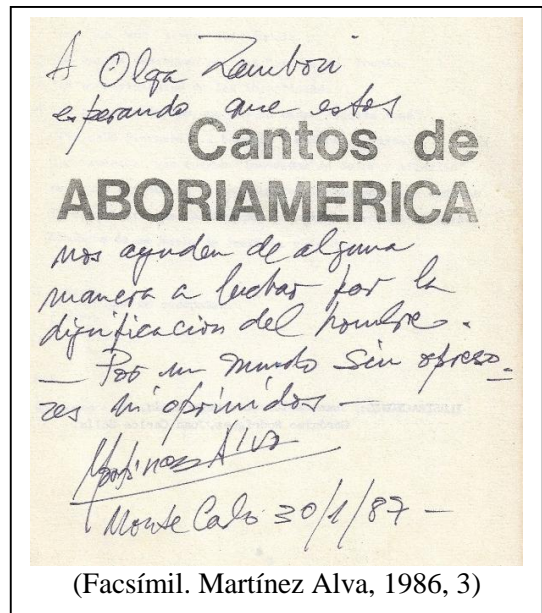 A Olga Zamboni
esperando que estos
Cantos de
ABORIAMERICA
nos ayuden de alguna
manera a luchar por la
dignificación del hombre.
— Por un mundo sin opreso-
res ni oprimidos —
Martínez Alva
Monte Carlo 30/1/87 —
(Facsímil. Martínez Alva, 1986, 3)